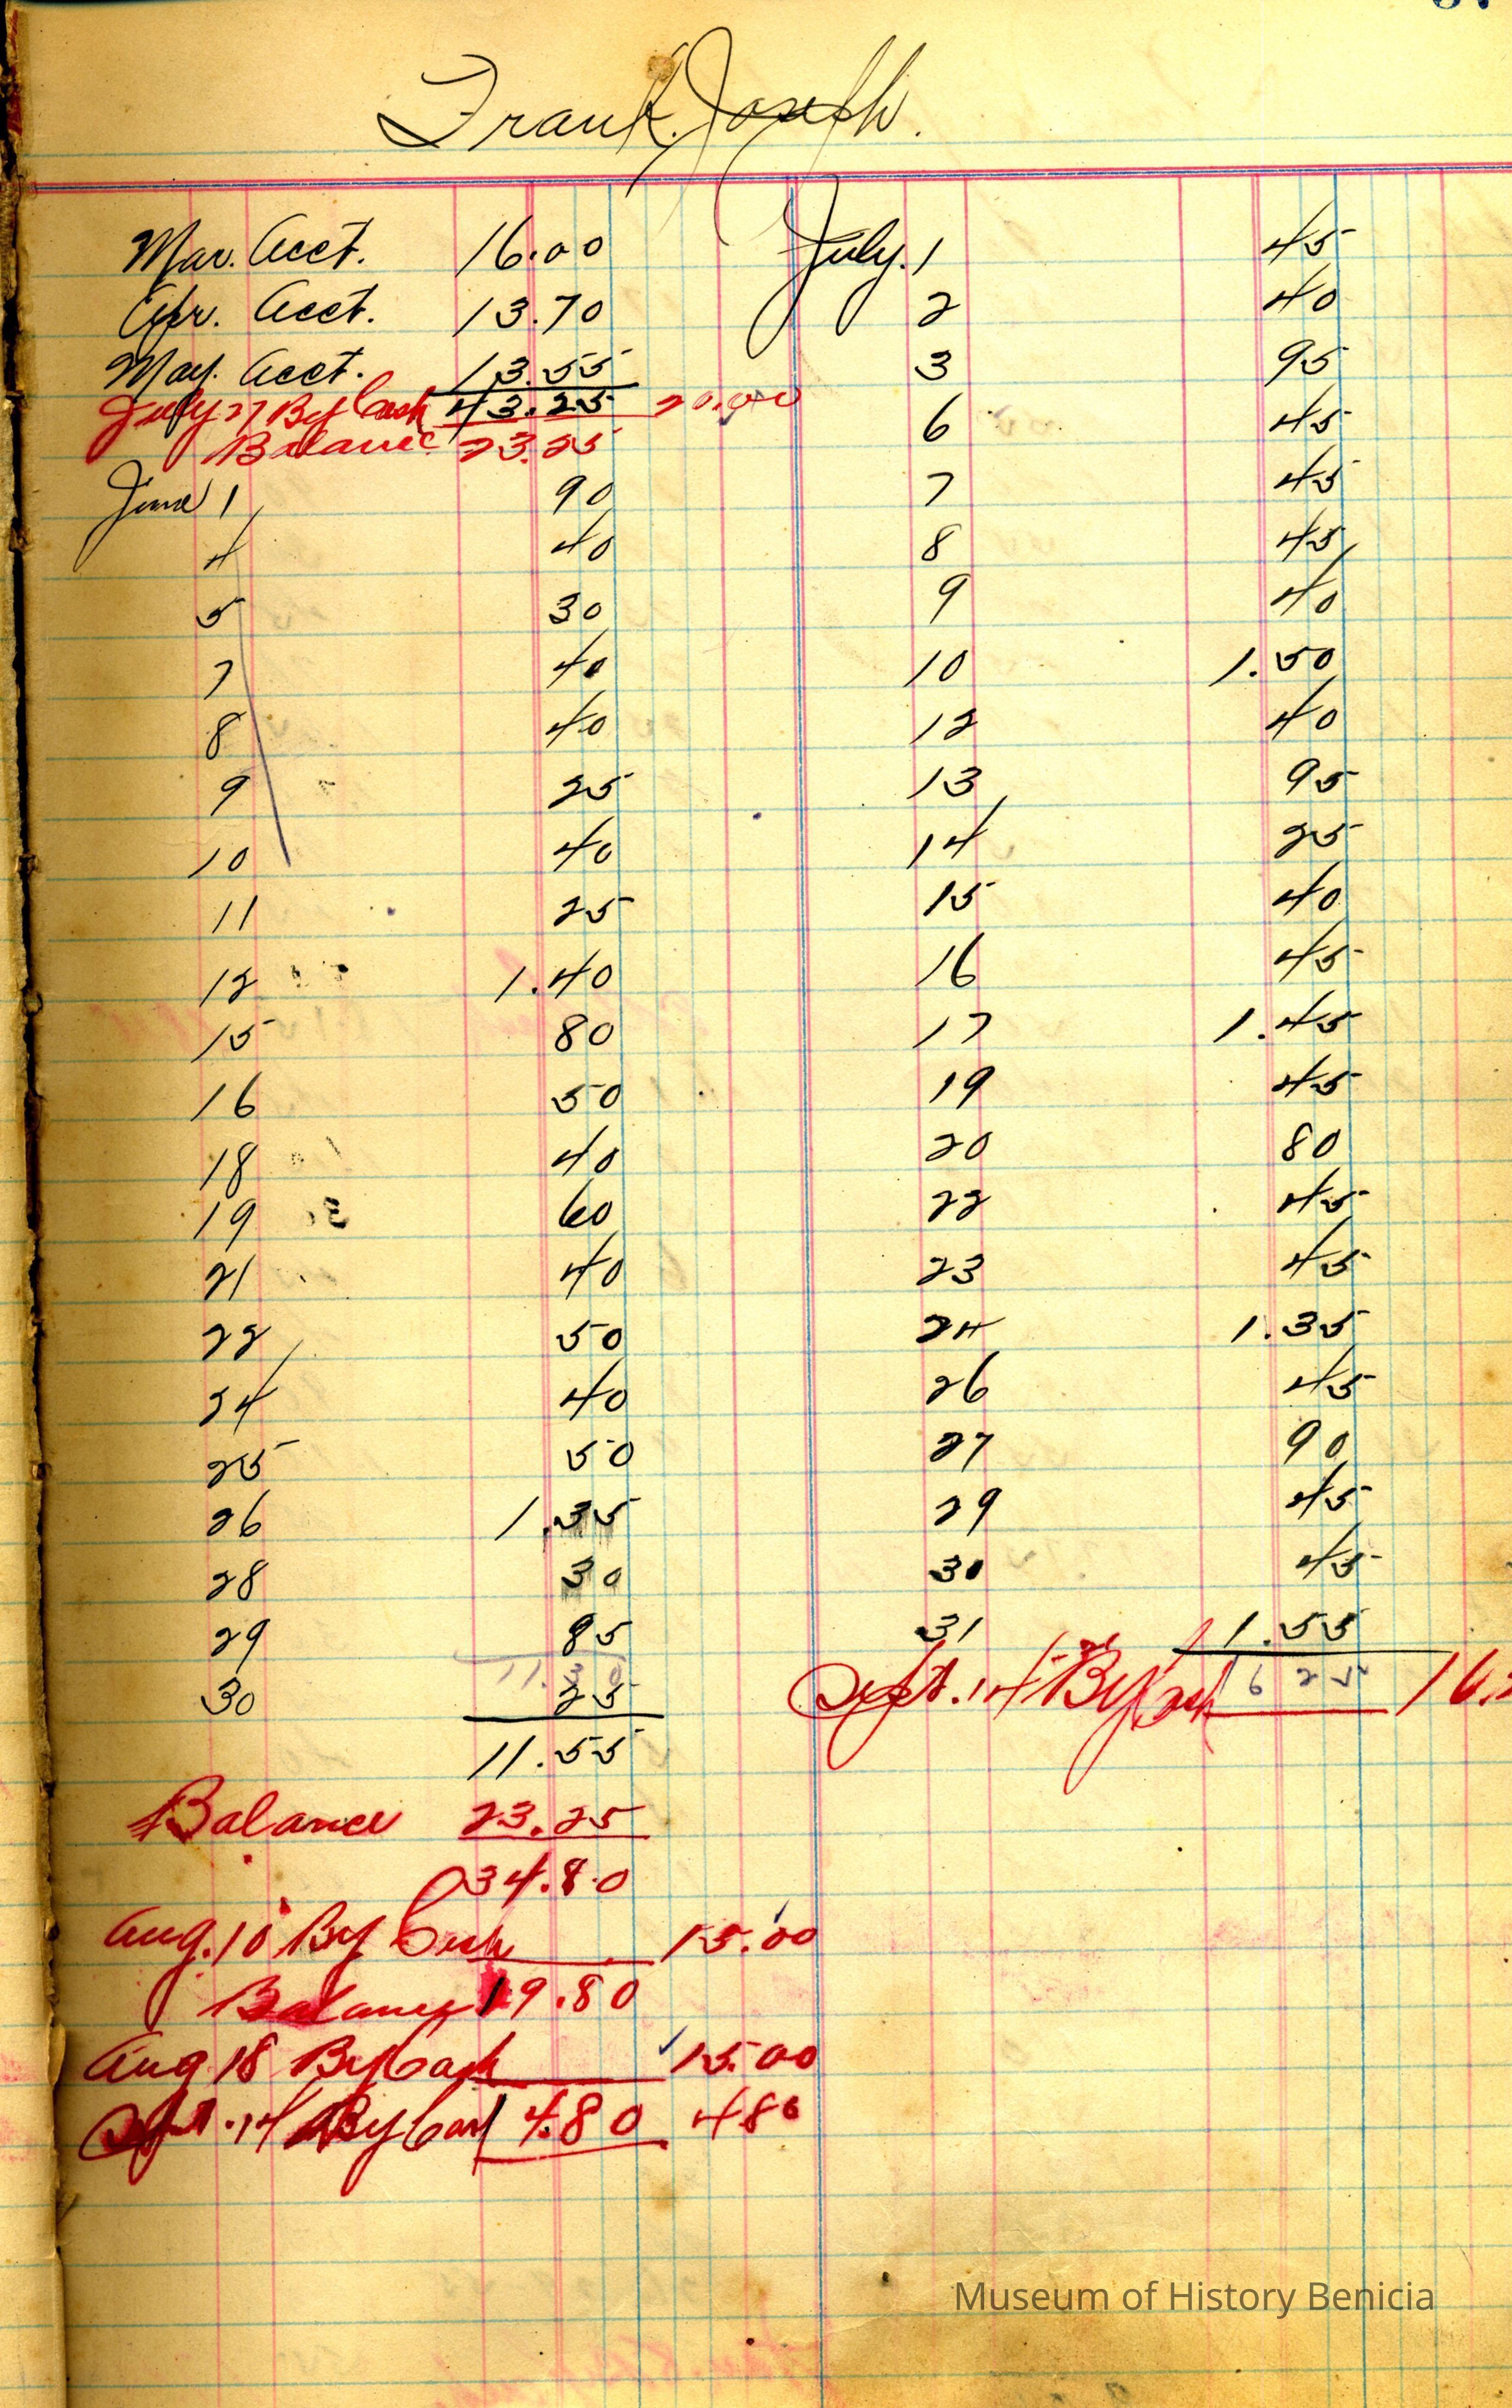 Frank Joseph.
Mar. Acct. 16.00
Apr. Acct. 13.70
May. Acct. 13.55
July 27 By Cash 43.25 20.00
Balance 23.25
June 1 90
4 40
5 30
7 40
8 40
9 25
10 40
11 25
12 1.40
15 80
16 50
18 40
19 60
21 40
22 50
24 40
25 50
26 1.35
28 30
29 85
11.30
30 25
11.55
Balance 23.25
34.80
Aug. 10 By Cash 15.00
Balance 19.80
Aug 18 By Cash 15.00
Sept. 14 By Cash 4.80 480
July. 1 45
2 40
3 95
6 45
7 45
8 45
9 40
10 1.50
12 40
13 95
14 25
15 40
16 45
17 1.45
19 45
20 80
22 45
23 45
24 1.35
26 45
27 90
29 45
30 45
31 1.55
Sept. 14 By Cash 16 25 16.
Museum of History Benicia